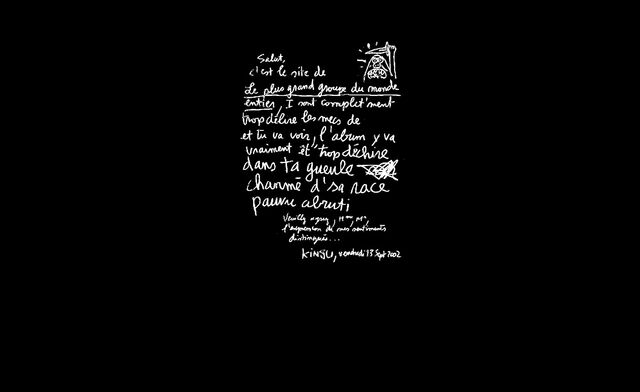 Salut,
c'est le site de
Le plus grand groupe du monde
entier, I sont complet'ment
trop délire les mecs de
et tu va voir, l'album y va
vraiment êt' trop déchire
dans ta gueule
charmé d'sa race
pauvre abruti
Veuillez agréer, Mme, Mr,
l'expression de mes sentiments
distingués...
KINJU, vendredi 13 Sept 2002